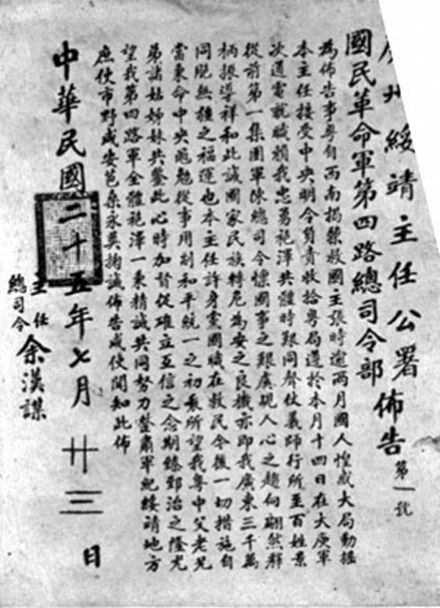 廣州綏靖主任公署
國民革命軍第四路總司令部
佈告 第一號
為佈告事粵自西南揭櫫救國主張時逾兩月國人惶惑大局動搖
本主任接受中央明令負責收拾粵局遵於本月十四日在大庾軍
次通電就職賴我忠勇袍澤共體時艱同聲仗義師行所至百姓景
從前第一集團軍陳總司令懍國事之艱虞覘人心之趨向翩然解
柄振導祥和此誠國家民族轉危為安之良機亦即我廣東三千萬
同胞無疆之福運也本主任許身黨國職在救民今後一切措施自
當秉命中央黽勉從事用副和平統一之初衷所望我粵中父老兄
弟諸姑姊妹共鑒此心時加督促確立互信之念期臻郅治之隆尤
望我第四路軍全體袍澤一秉精誠共同努力整肅軍紀綏靖地方
庶使市野咸安苞桑永奠掬誠佈告咸使聞知此佈
中華民國二十五年七月廿三日
主任
總司令
余漢謀